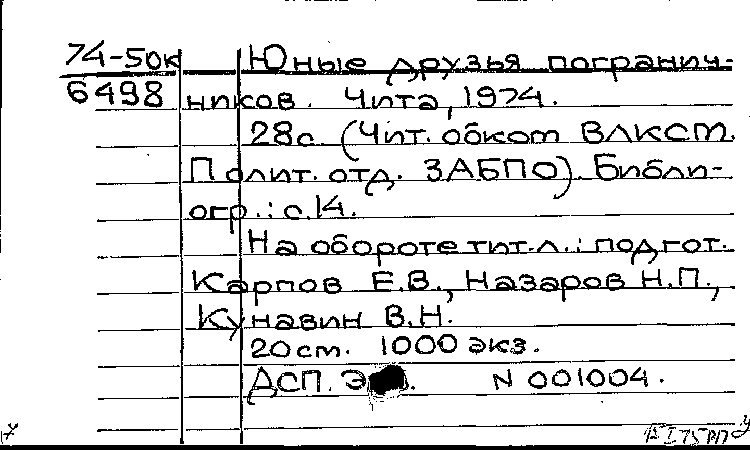 74-50к Юные друзья погранич-
6498 ников. Чита, 1974.
28с. (Чит. обком ВЛКСМ.
Полит. отд. ЗАБПО). Библи-
огр.: с.14.
На обороте тит.л.: подгот.
Карпов Е.В., Назаров Н.П.,
Кунавин В.Н.
20см. 1000 экз.
ДСП. N 001004.